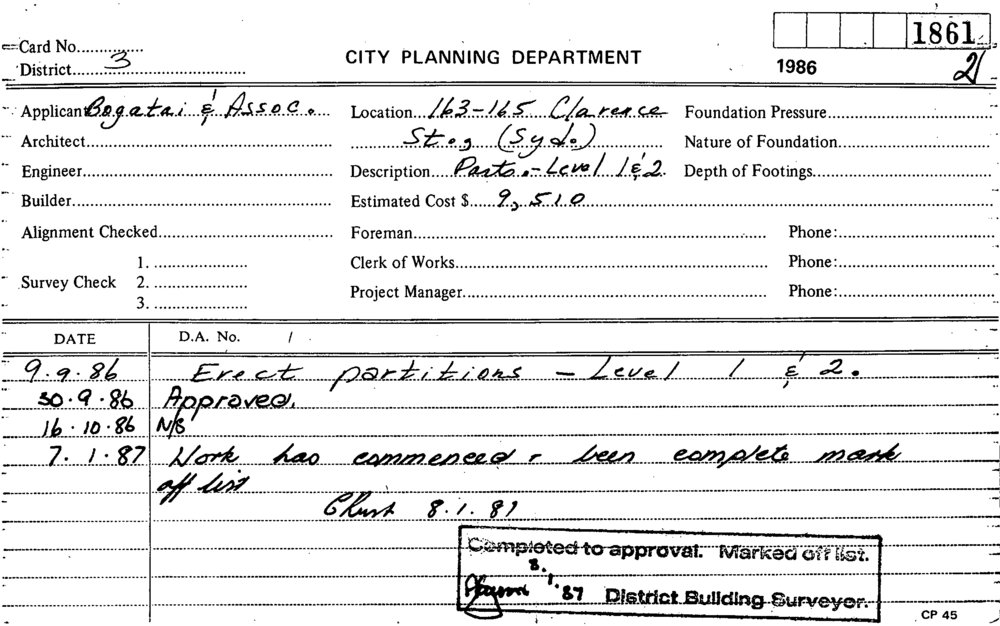 1861
Card No.
District 3
CITY PLANNING DEPARTMENT
1986
21
Applicant Bogatai & Assoc.
Location 163-165 Clarence
Foundation Pressure
Architect
St., (Syd.)
Nature of Foundation
Engineer
Description Parts.-Level 1 & 2.
Depth of Footings
Builder
Estimated Cost $ 9,510
Alignment Checked
Foreman
Phone:
Survey Check
1.
2.
3.
Clerk of Works
Phone:
Project Manager
Phone:
DATE
D.A. No. /
9.9.86 Erect partitions - Level 1 & 2.
30.9.86 Approved.
16.10.86 N/S
7.1.87 Work has commenced & been complete mark
off list
8.1.87
Completed to approval. Marked off list.
8.1.87
District Building Surveyor.
CP 45